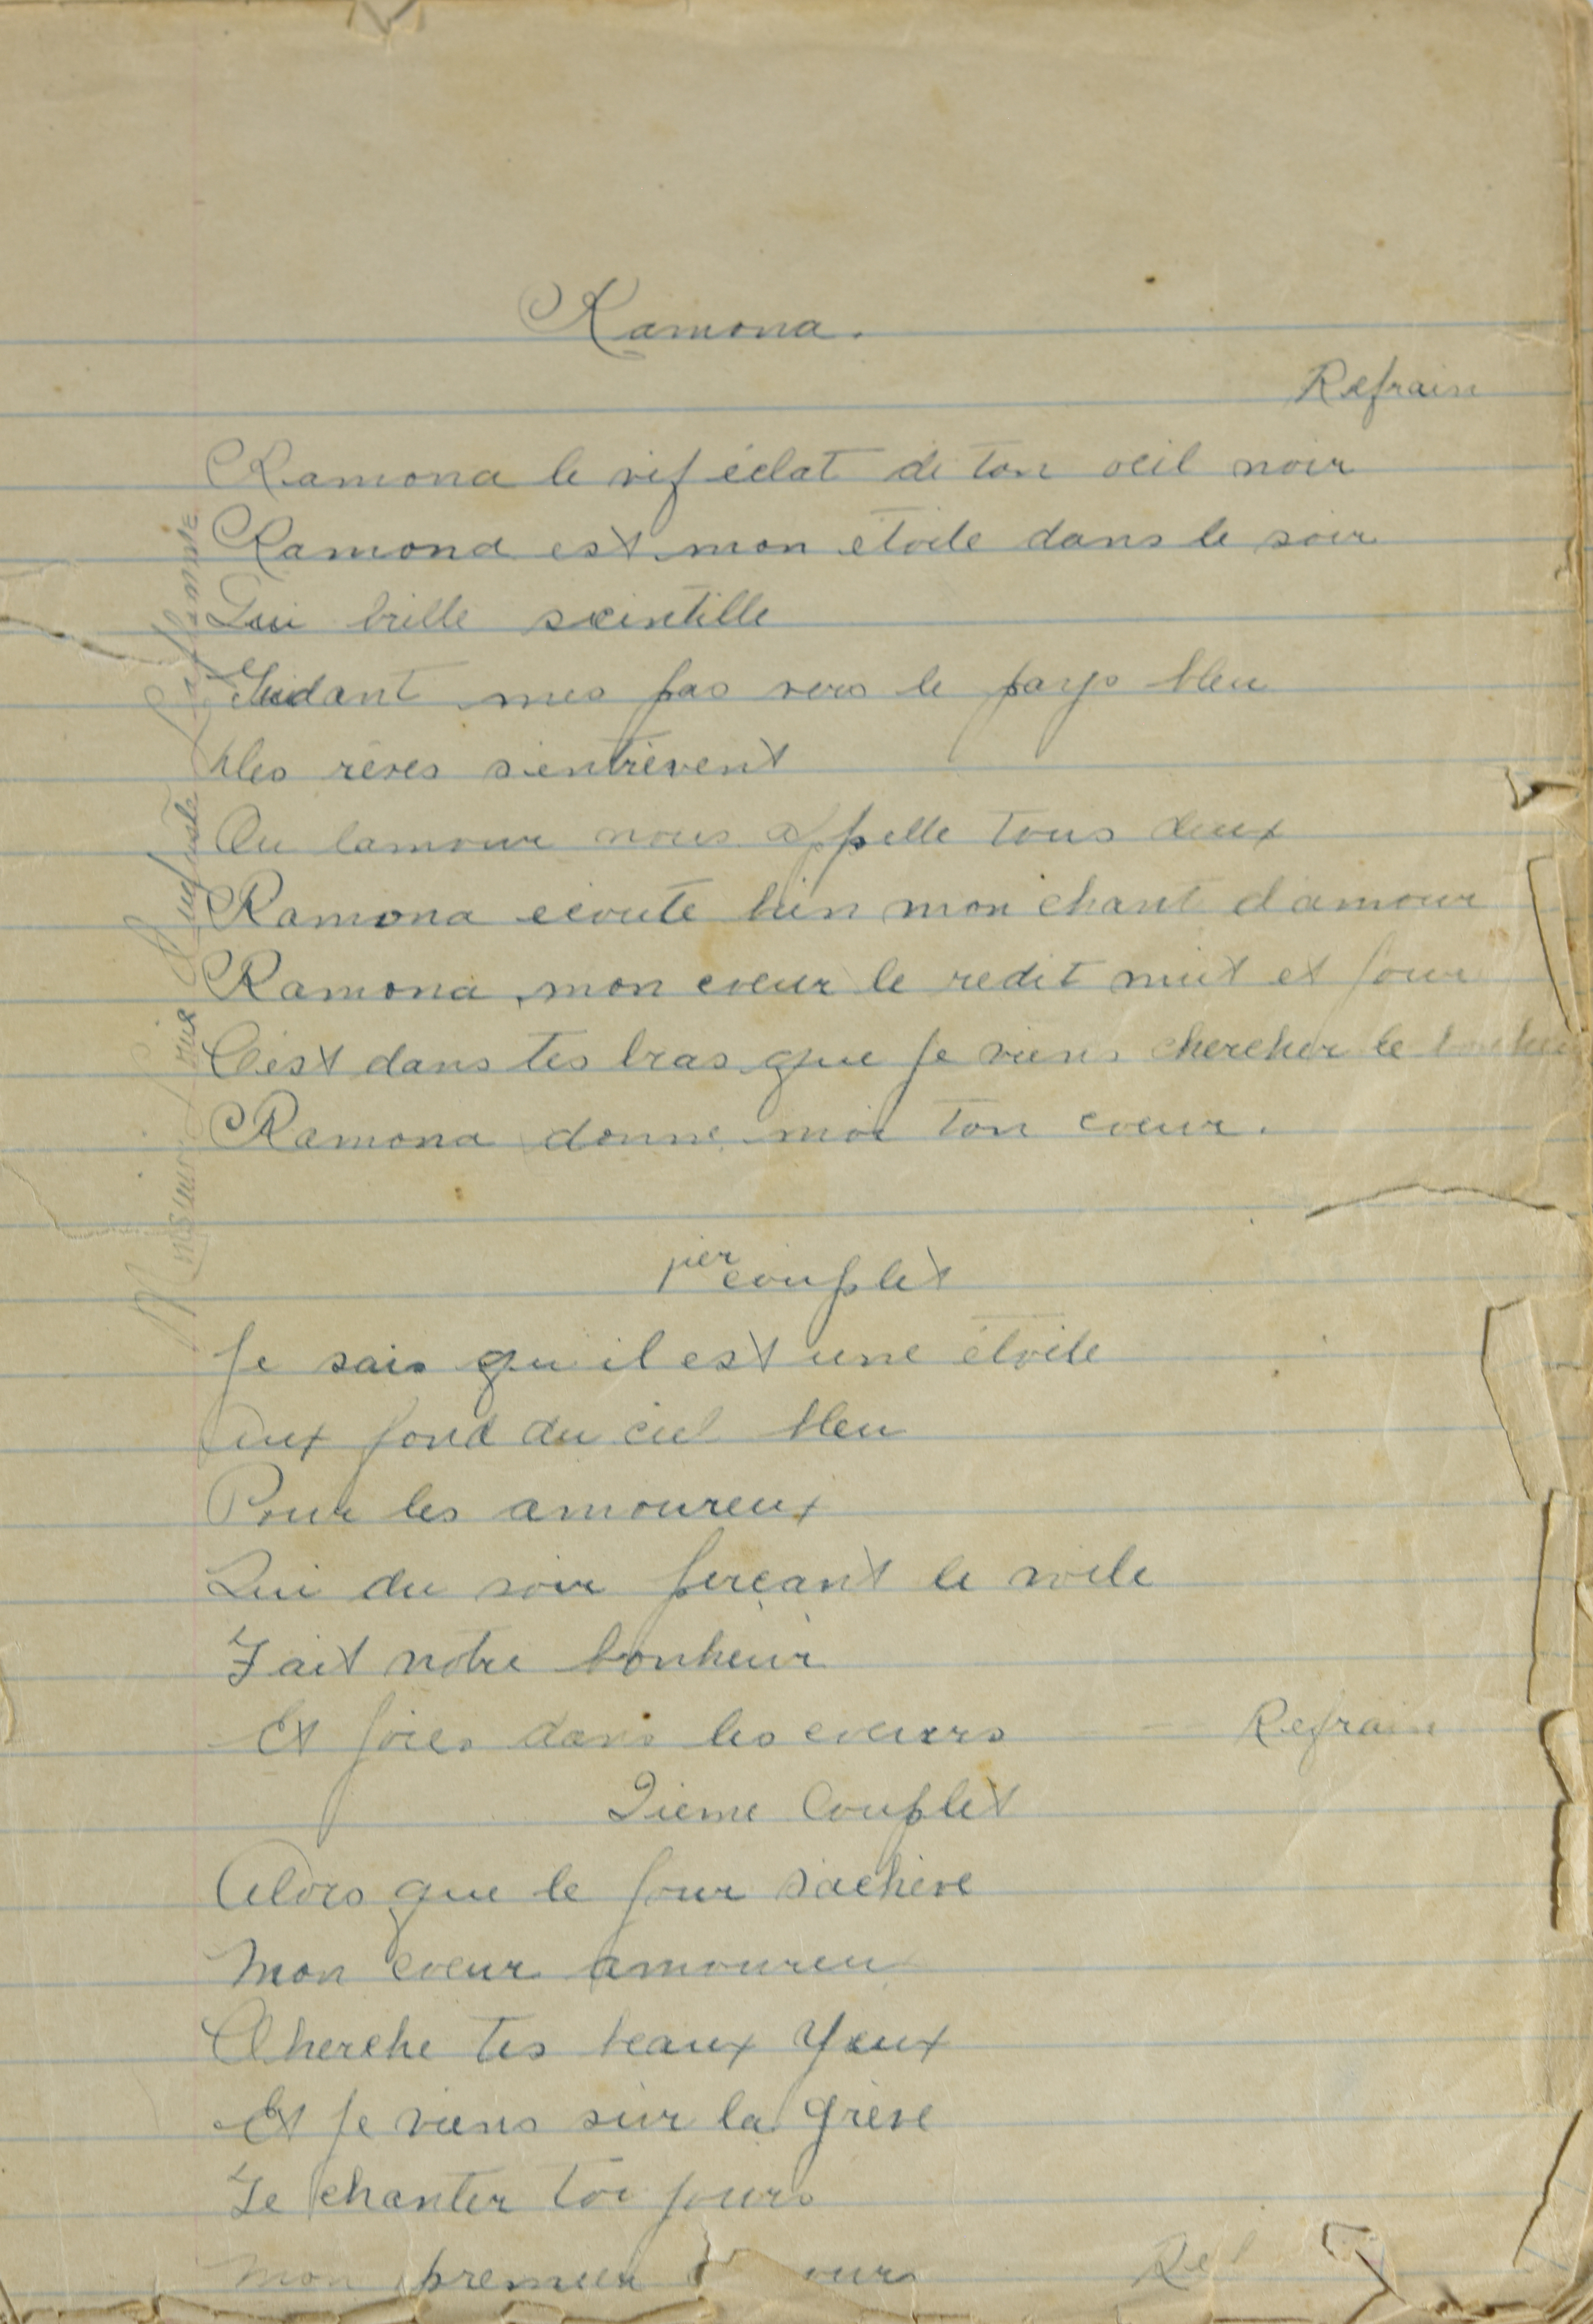 Ramona.
Refrain
Ramona le vif éclat de ton oeil noir
Ramona est mon étoile dans le soir
Qui brille scintille
Guidant mes pas vers le pays bleu
Nos rêves s'entrevent
Ou lamour nous appelle tous deux
Ramona ecoute bien mon chant d'amour
Ramona, mon coeur le redit nuit et jour
C'est dans tes bras que je viens chercher le
Ramona donne moi ton coeur.
1ier couplet
Je sais qu il est une étoile
Aux fond du ciel bleu
Pour les amoureux
Qui du soir perçant le voile
Fait notre bonheur
Et joies dans les coeurs Refrain
2ieme Couplet
Alors que le jour s'achève
Mon coeur amoureu
Cherche tes beaux Yeux
Et je viens sur la grève
Te chanter toi jours
Mon premier
Monsieur Auguste